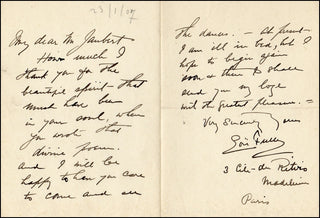 23/1/07
My dear Mr Jaubert
How much I
thank you for the
beautiful spirit that
must have been
in your soul, when
you wrote that
divine poem.
and I will be
happy to have you care
to come and see
the dances. – At present
I am ill in bed, but I
hope to begin again
soon & then I'll share
and you my loge
with the greatest pleasure. –
Very Sincerely yours
Loïe Fuller
3 Cité du Retiro
Madeleine
Paris